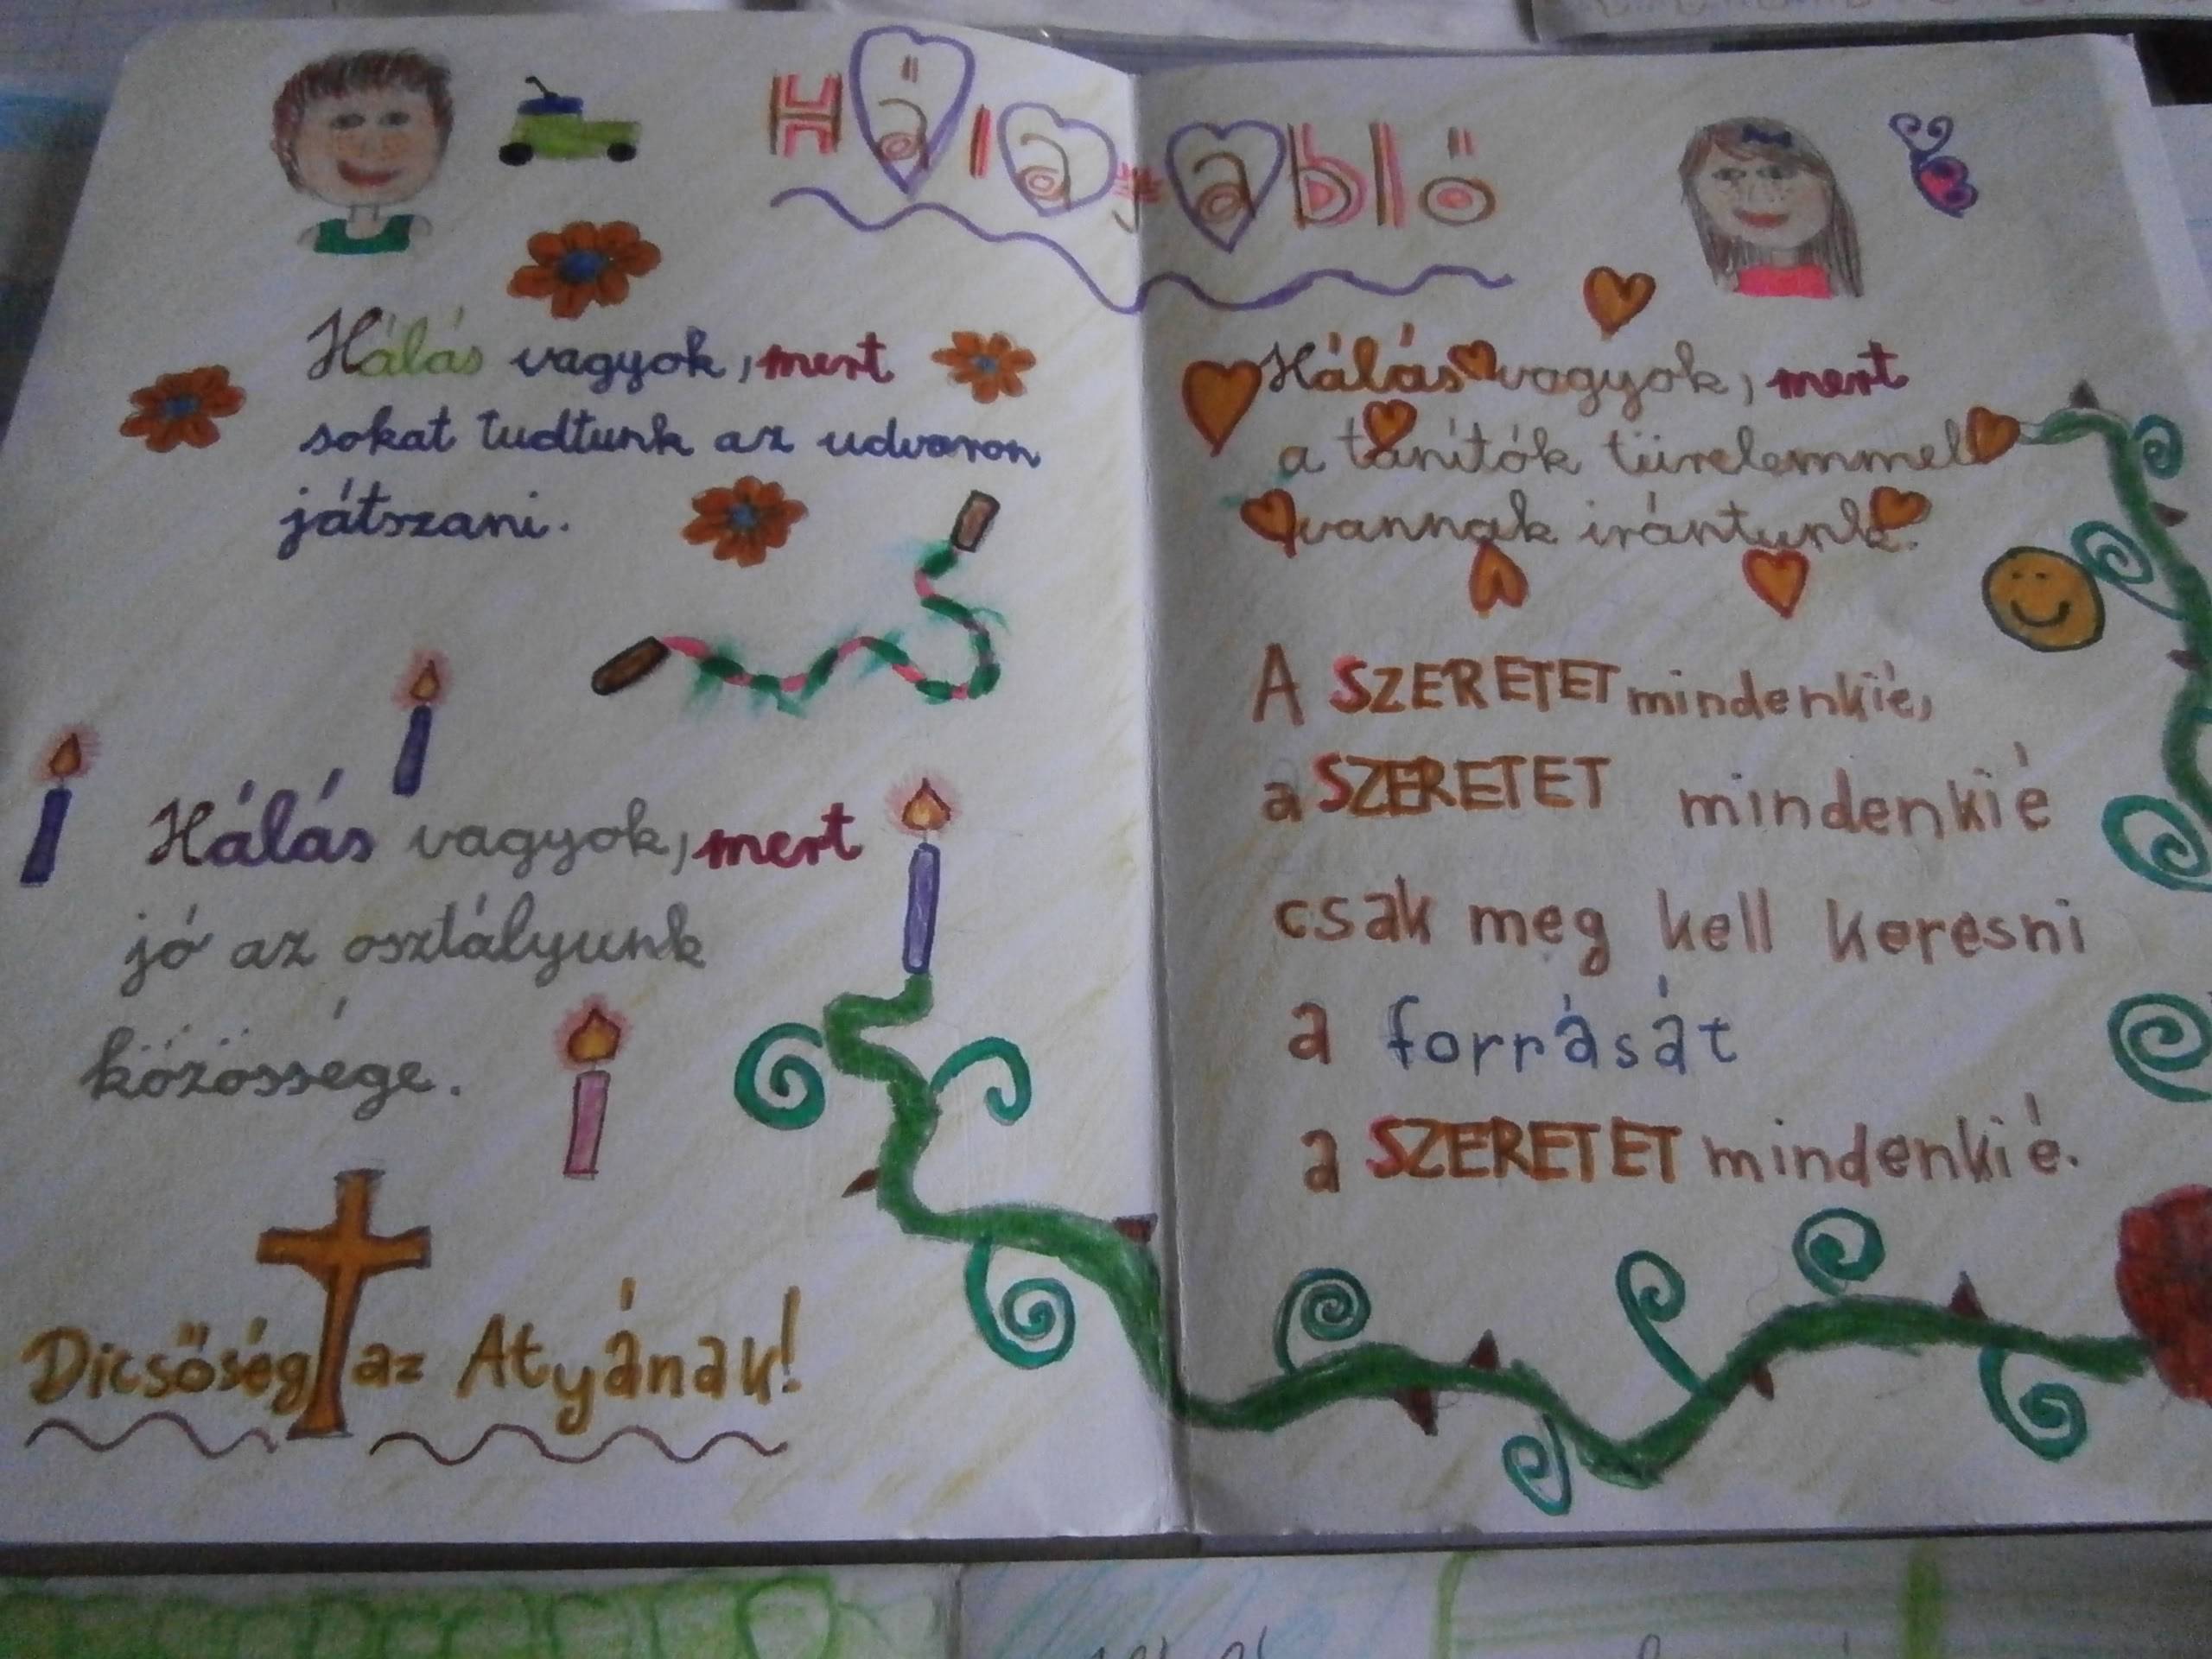 Hálatabló
Hálás vagyok, mert
sokat tudtunk az udvaron
játszani.
Hálás vagyok, mert
jó az osztályunk
közössége.
Dicsőség az Atyának!
Hálás vagyok, mert
a tanítók türelemmel
vannak irántunk.
A SZERETET mindenkié,
a SZERETET mindenkié
csak meg kell keresni
a forrását
a SZERETET mindenkié.